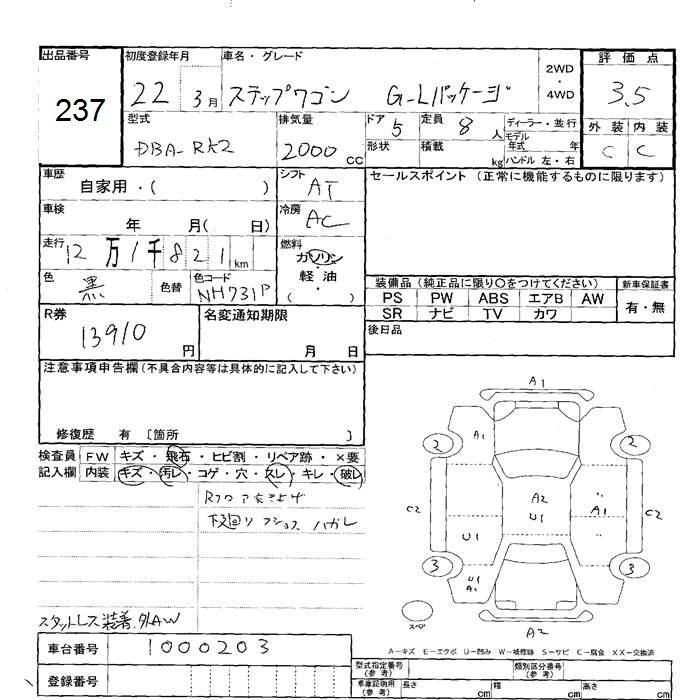 出品番号
237
初度登録年月
22 3月
車名・グレード
ステップワゴン G-Lパッケージ
2WD
・
4WD
評価点
3.5
型式
DBA-RK2
排気量
2000cc
ドア
5
定員
8人
ディーラー・並行
モデル
年式 年
ハンドル 左・右
形状
積載
kg
外装 内装
C C
車歴
自家用・( )
シフト
AT
セールスポイント (正常に機能するものに限ります)
車検
年 月( 日)
冷房
AC
走行
12万1千821km
燃料
ガソリン
・
軽油
・
( )
色
黒
色替
色コード
NH731P
装備品(純正品に限り〇をつけてください)
新車保証書
PS PW ABS エアB AW
有・無
SR ナビ TV カワ
R券
13910円
名変通知期限
月 日
後日品
注意事項申告欄(不具合内容等は具体的に記入して下さい)
修復歴 有 [箇所 ]
検査員 FW キズ・飛石・ヒビ割・リペア跡・×要
記入欄 内装 キズ・汚レ・コゲ・穴・スレ・キレ・破レ
下廻り ハガレ
スタットレス装着.外AW
車台番号
1000203
登録番号
A1
2
A1
2
C2
A2
U1
A1
C2
U1
3
U1
A1
3
スペア
A2
A-キズ E-エクボ U-凹み W-補修跡 S-サビ C-腐食 XX-交換済
型式指定番号
(参考)
類別区分番号
(参考)
車庫証明用
(参考)
長さ cm
幅 cm
高さ cm